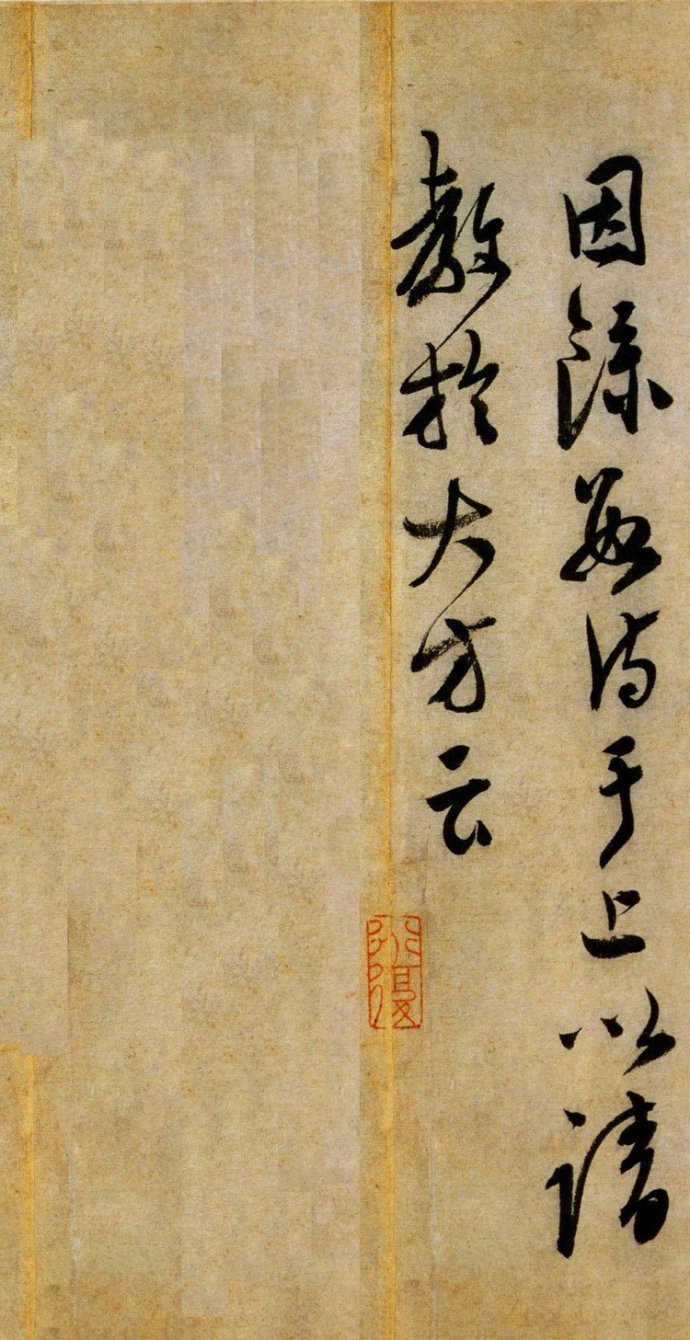 因録詩于上以請
教於大方云